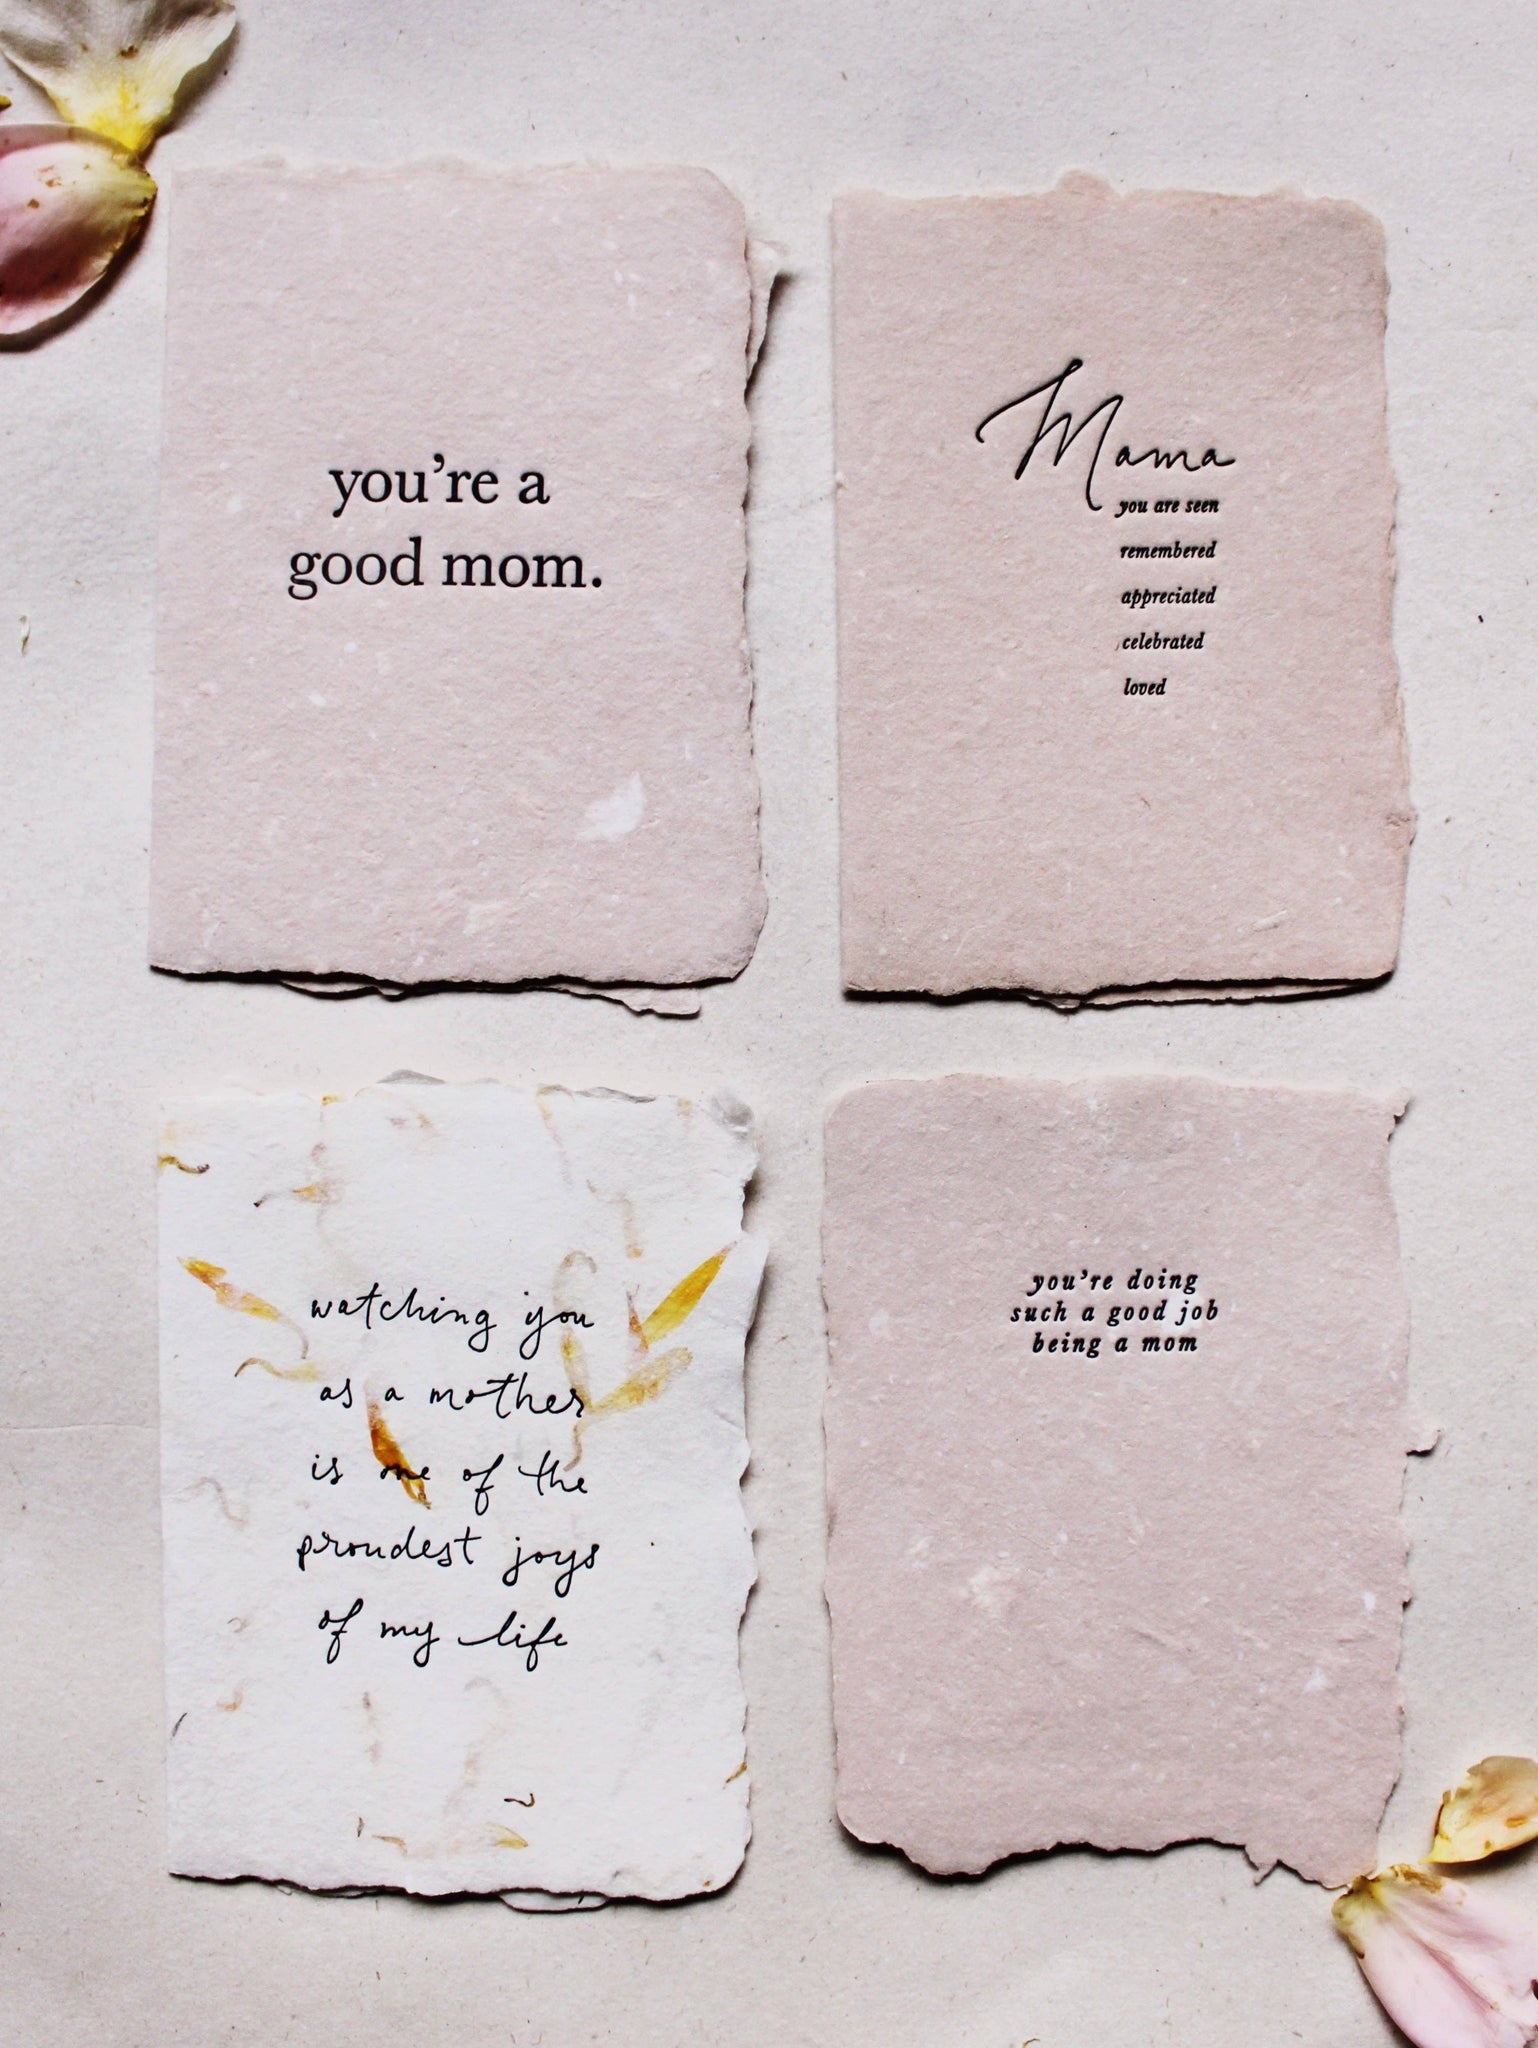 you're a
good mom.
Mama
you are seen
remembered
appreciated
celebrated
loved
watching you
as a mother
is one of the
proudest joys
of my life
you're doing
such a good job
being a mom